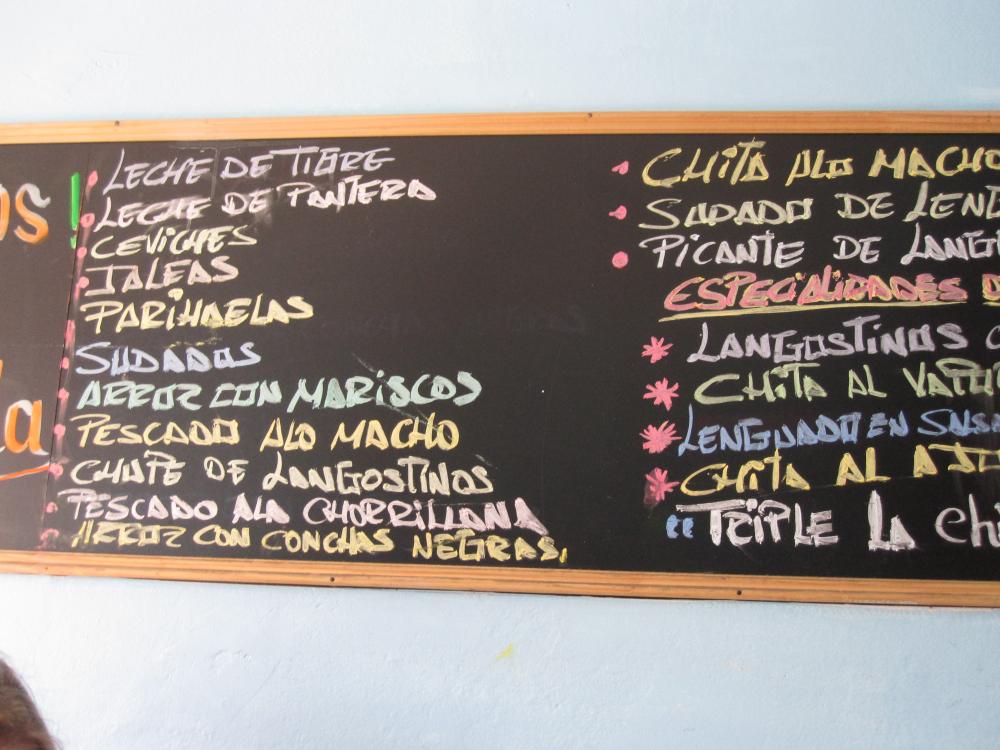 os!
a
LECHE DE TIGRE
LECHE DE PANTERA
CEVICHES
JALEAS
PARIHUELAS
SUDADOS
ARROZ CON MARISCOS
PESCADO ALO MACHO
CHUPE DE LANGOSTINOS
PESCADO ALA CHORRILLANA
ARROZ CON CONCHAS NEGRAS,
CHITA ALO MACHO
SUDADO DE LENG
PICANTE DE LANG
ESPECIALIDADES D
LANGOSTINOS
CHITA AL VAPOR
LENGUADO EN SALSA
CHITA AL AJ
"TRIPLE LA Ch